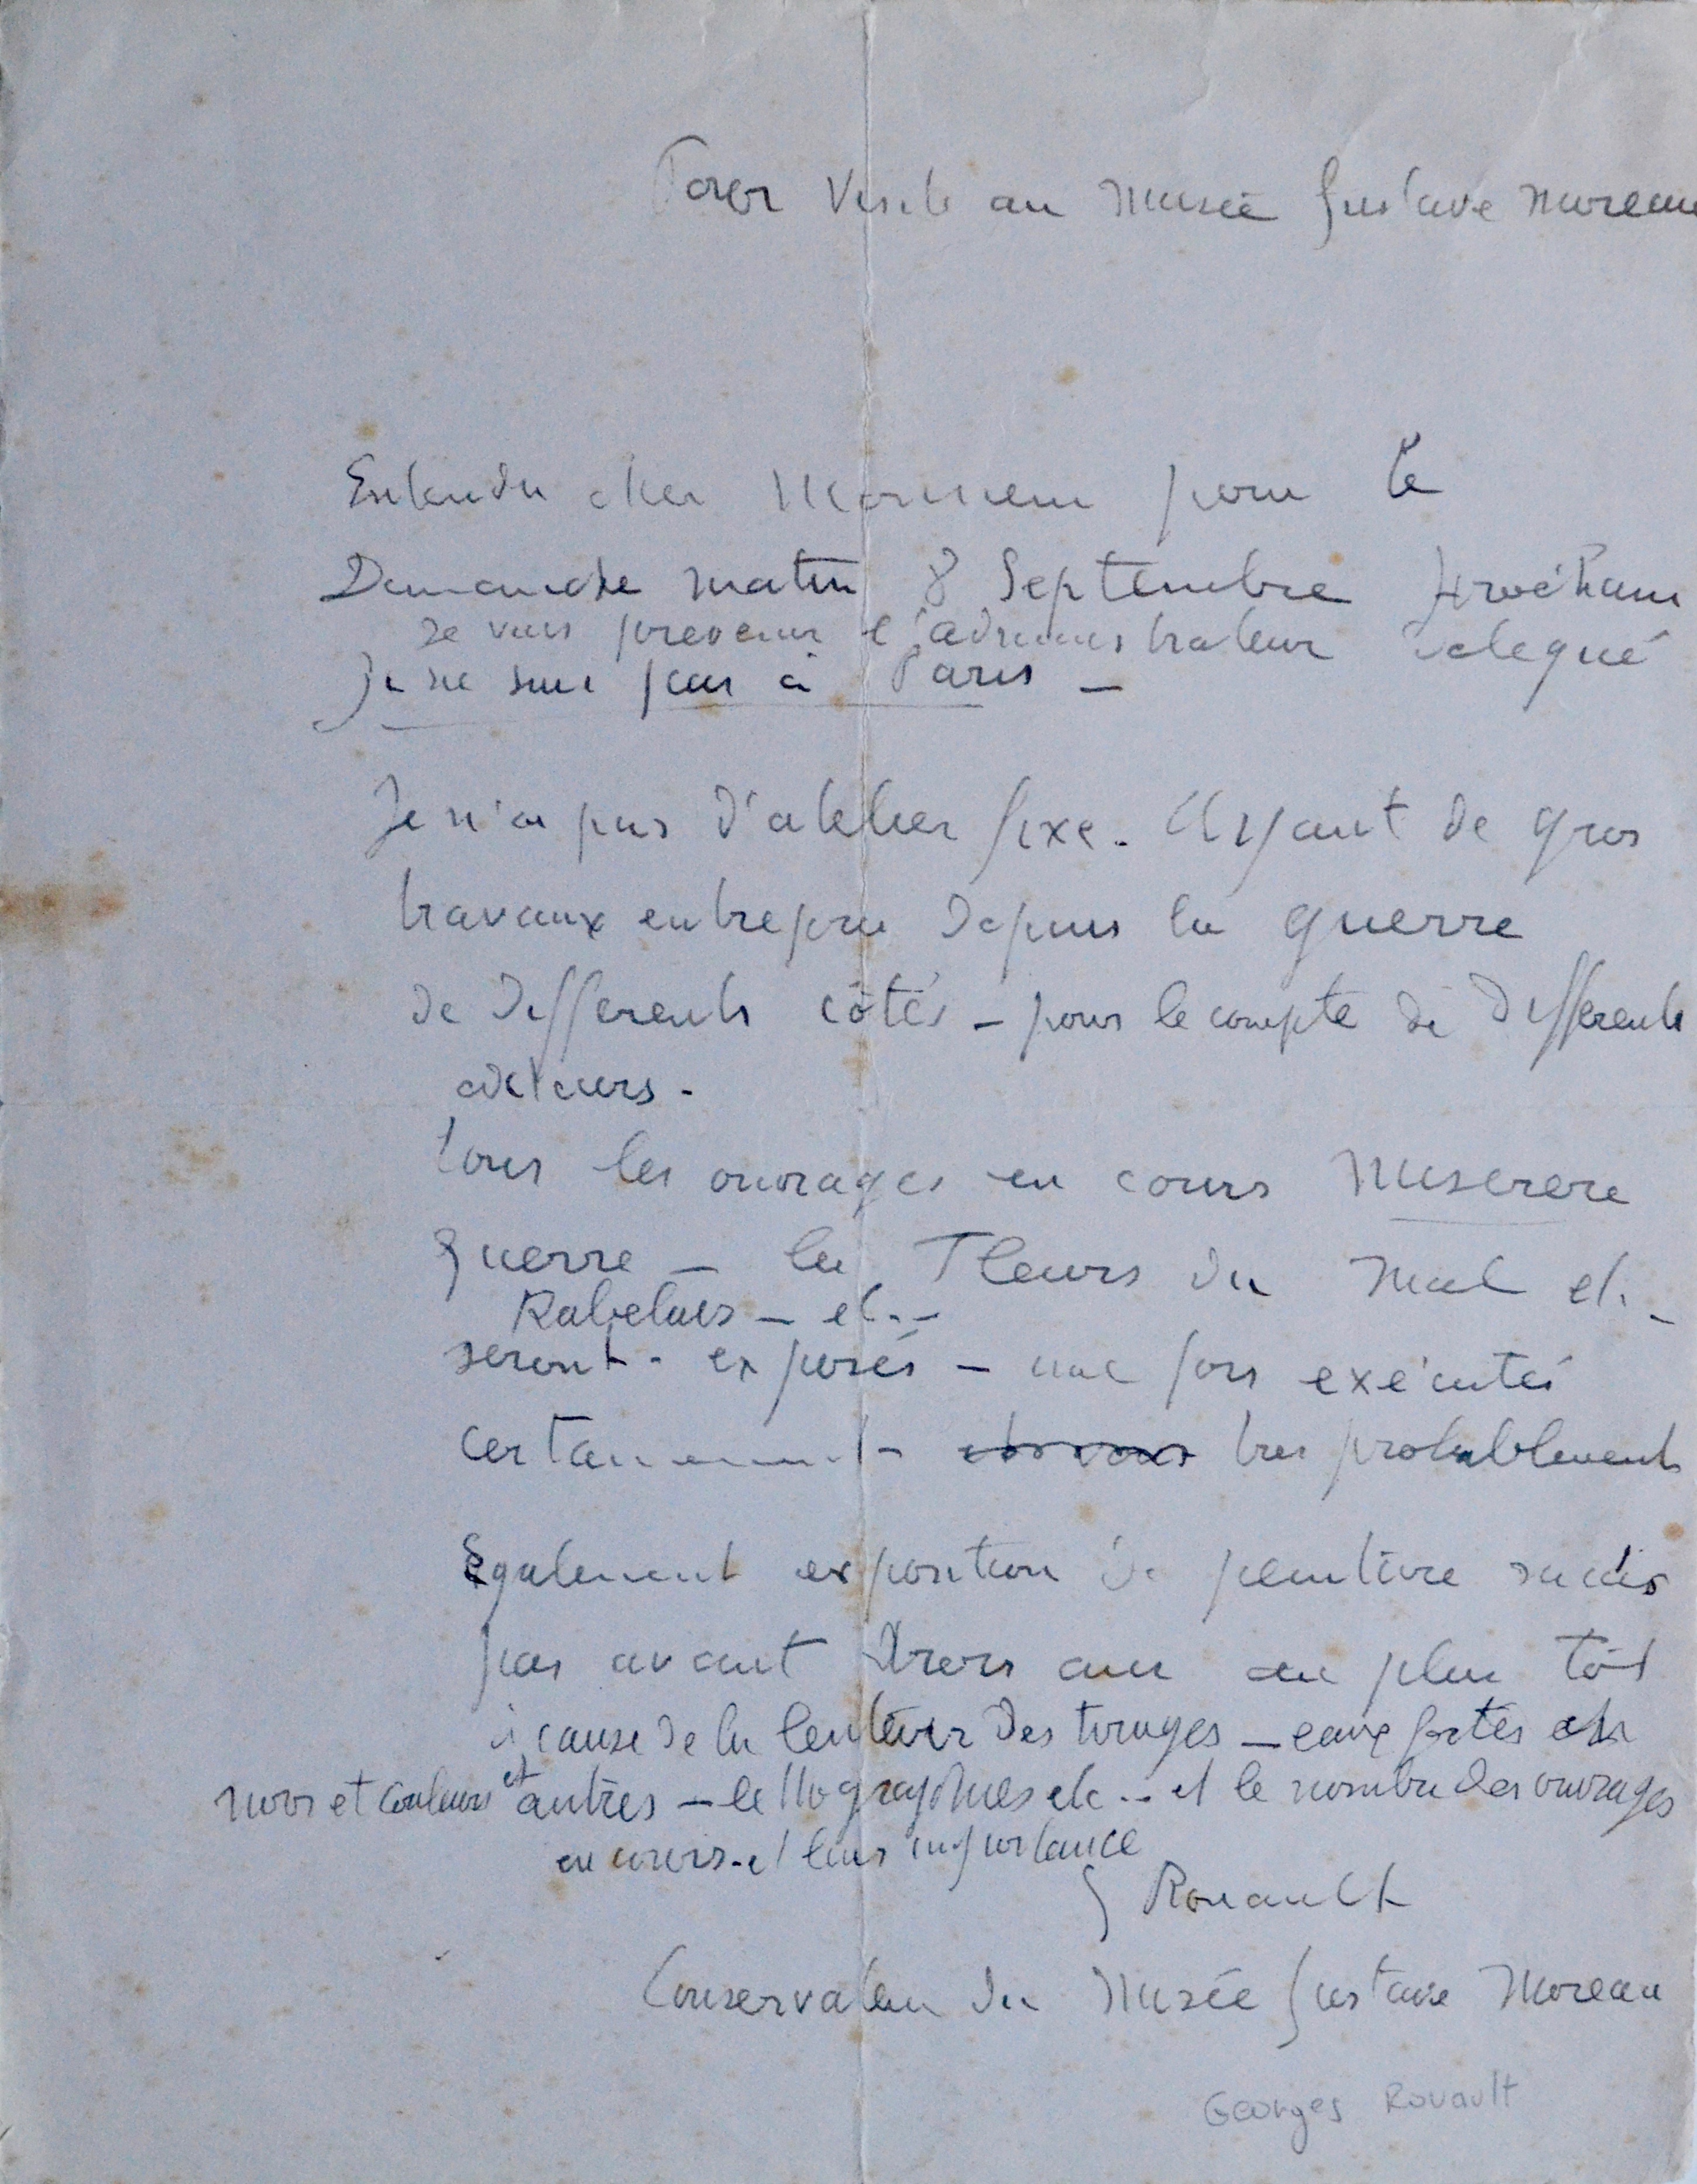 Pour Visite au Musée Gustave Moreau
Entendu cher Monsieur pour le
Dimanche matin 8 Septembre prochain
Je vais prevenir l'administrateur délegué
Je ne suis pas à Paris –
Je n'ai pas d'atelier fixe. Ayant de gros
travaux entrepris depuis la guerre
de differents côtés – pour le compte de differents
editeurs.
Tous les ouvrages en cours Miserere
Guerre – les Fleurs du Mal et. –
Rabelais – et. –
seront exposés – une fois exécutés
certainement – très probablement
Egalement exposition de peinture
pas avant trois ans au plus tôt
à cause de la lenteur des tirages – eaux fortes en
noir et couleurs et autres – lithographies etc .. et le nombre des ouvrages
en cours et leur importance
G Rouault
Conservateur du Musée Gustave Moreau
Georges Rouault